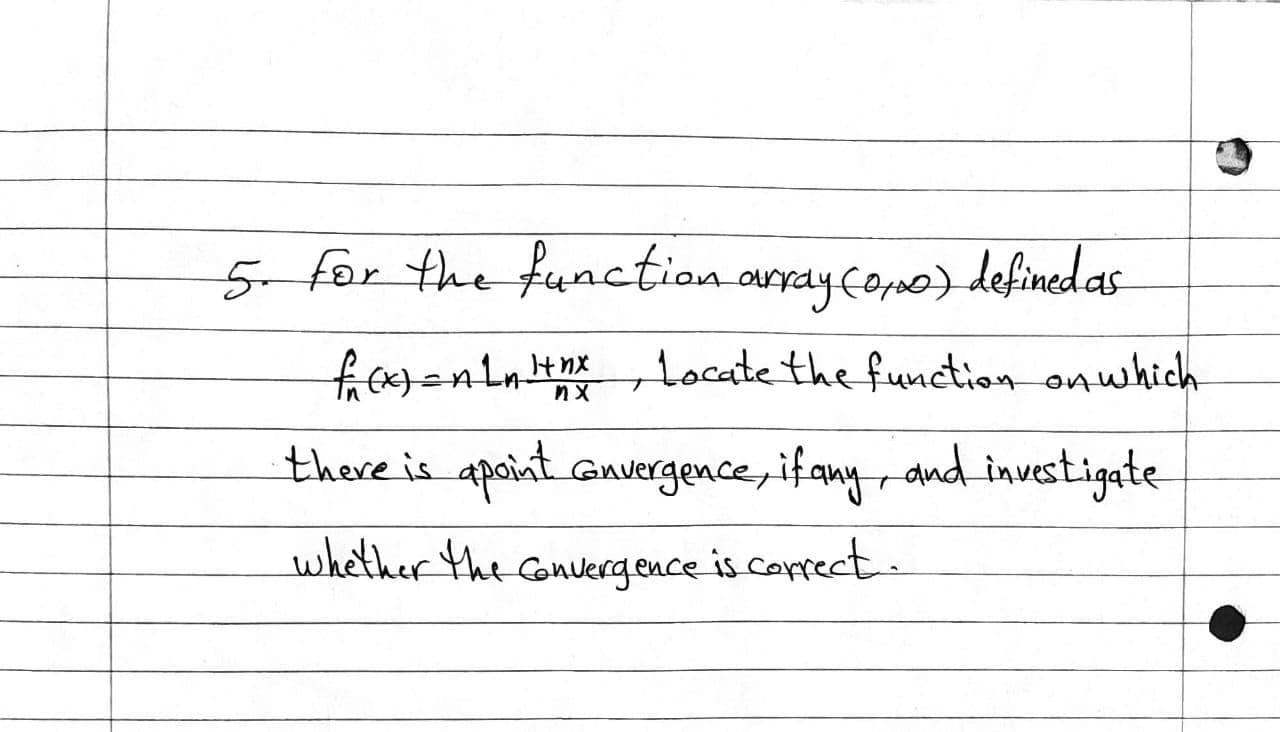 5. For the function array (0,∞) defined as
fn(x) = n Ln 1+nx / nx , Locate the function on which
there is apoint convergence, if any, and investigate
whether the convergence is correct.